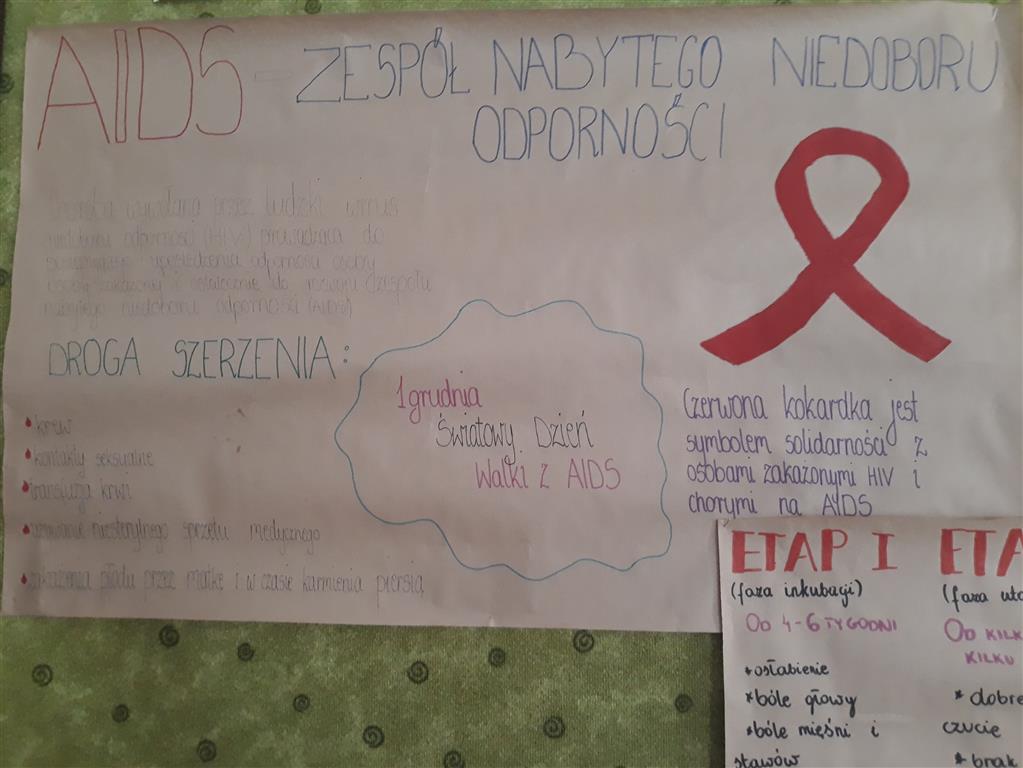 AIDS - ZESPÓŁ NABYTEGO NIEDOBORU
ODPORNOŚCI
choroba wywołana przez ludzki wirus
niedoboru odporności (HIV) prowadząca do
upośledzenia odporności osoby
i ostatecznie do rozwoju zespołu
niedoboru odporności (AIDS)
DROGA SZERZENIA:
krew
kontakty seksualne
transfuzja krwi
używanie niesterylnego sprzętu medycznego
zakażenia płodu przez matkę i w czasie karmienia piersią
1 grudnia
Światowy Dzień
Walki z AIDS
Czerwona kokardka jest
symbolem solidarności z
osobami zakażonymi HIV i
chorymi na AIDS
ETAP I
(faza inkubacji)
OD 4-6 TYGODNI
*osłabienie
*bóle głowy
*bóle mięśni i
stawów
ETA
(faza uta
OD KILK
KILKU
* dobre
czucie
* brak